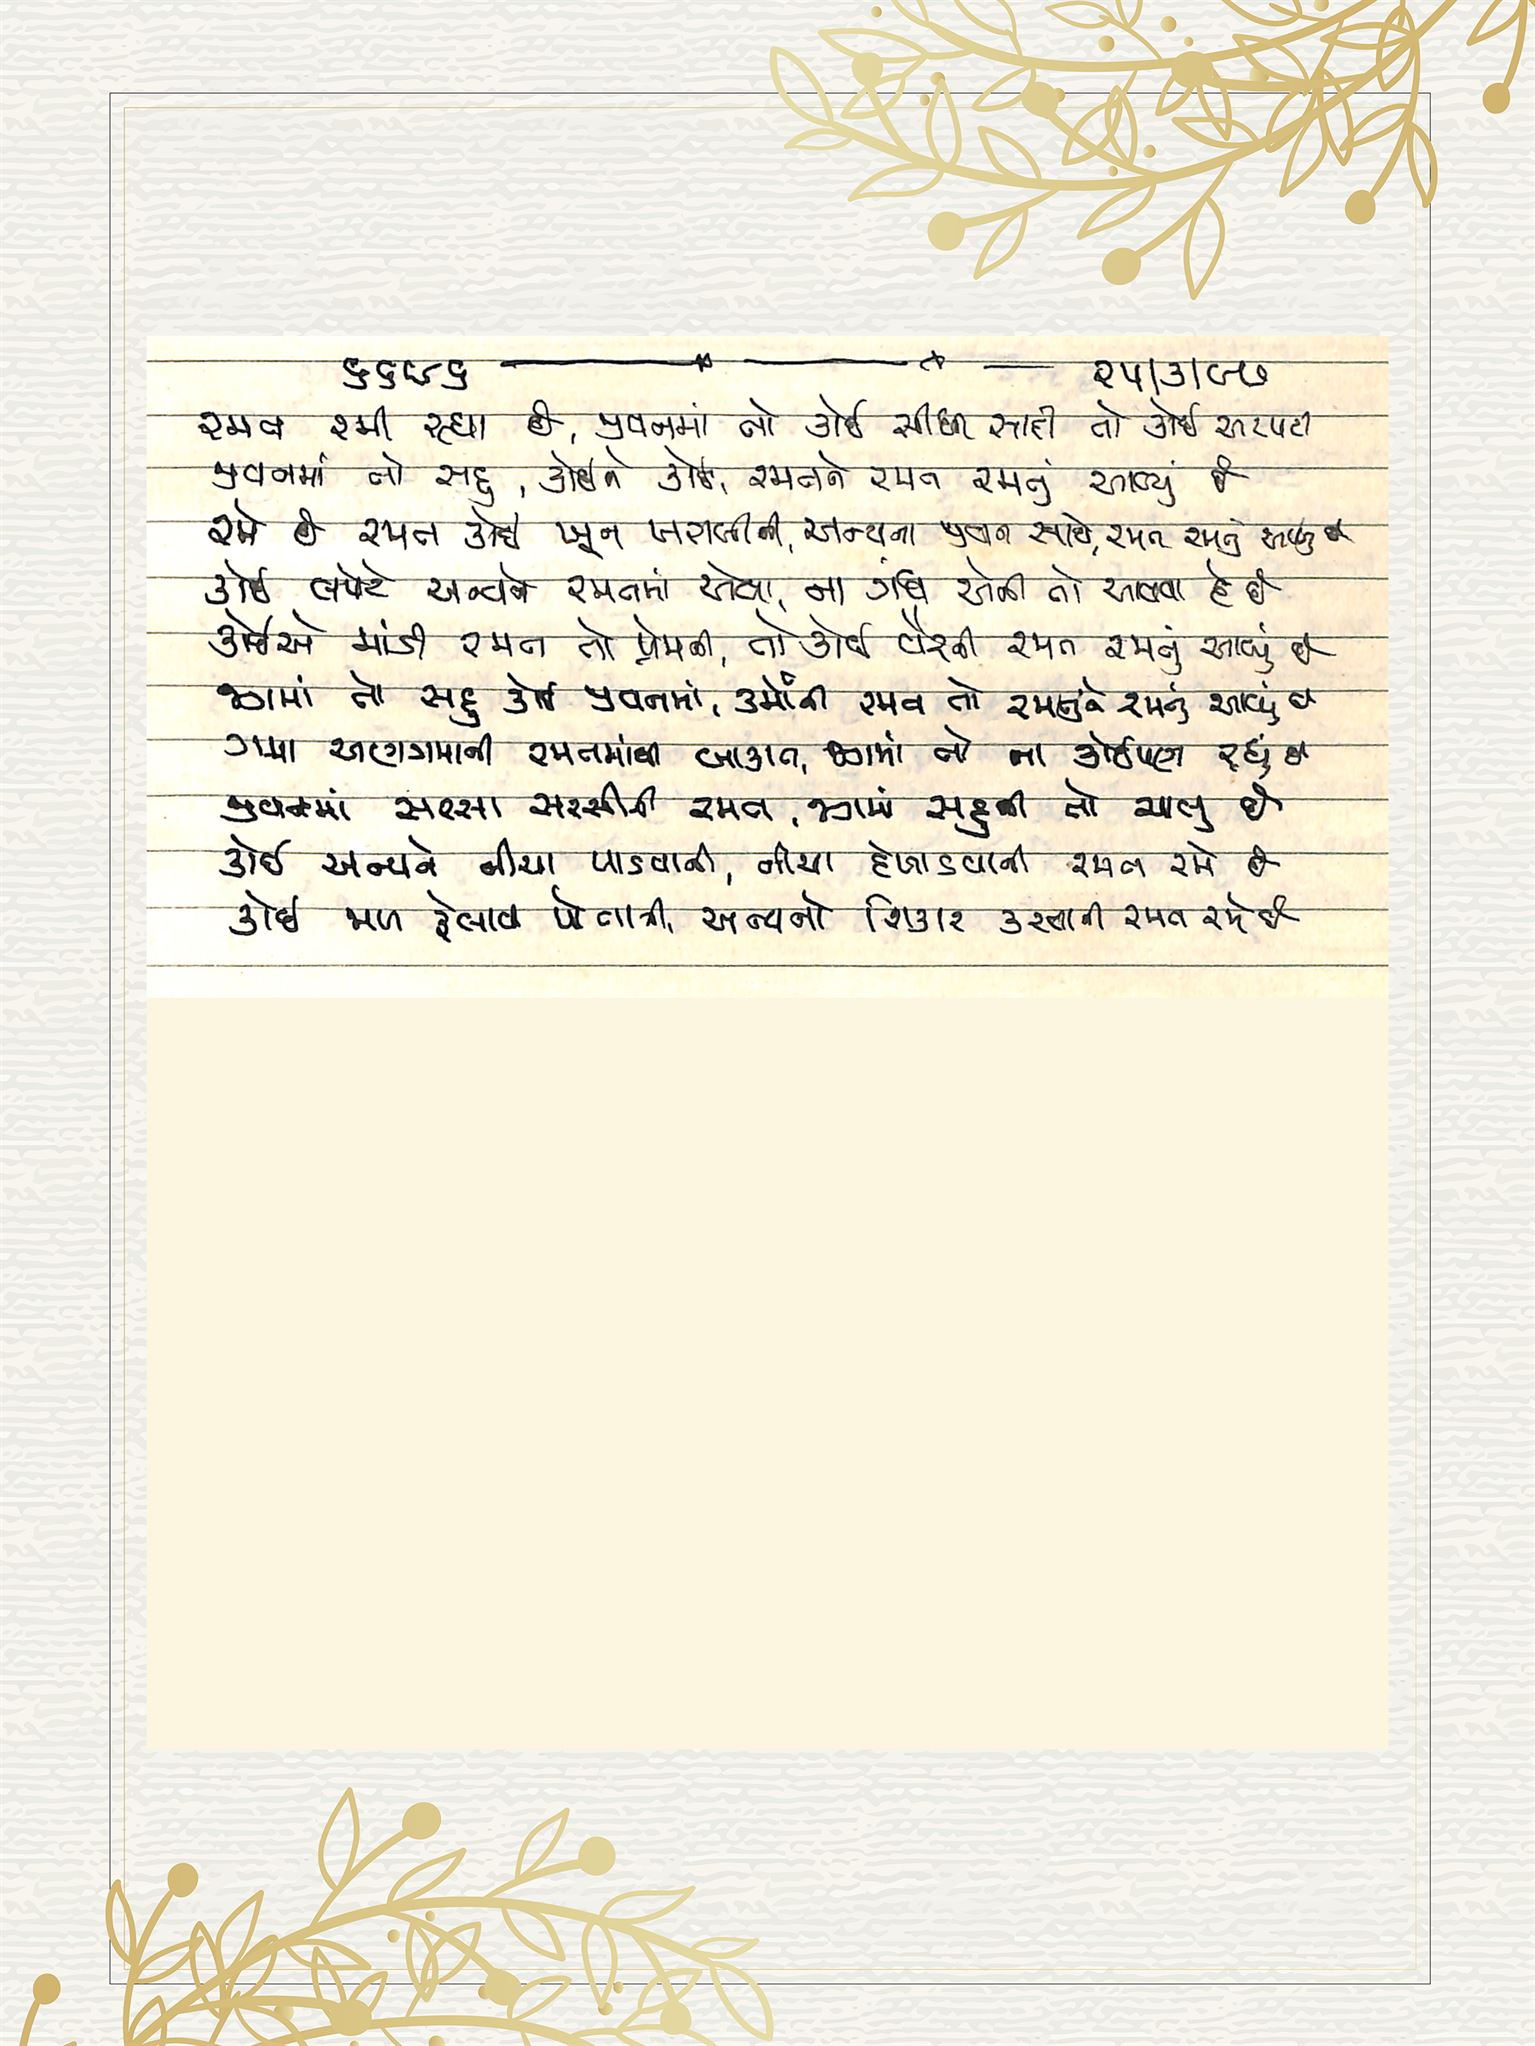 ૬૬૯૬ ૨૫/૩/૯૭
રમત રમી રહ્યા છે, જીવનમાં તો કોઈ સીધી સાદી તો કોઈ અટપટી
જીવનમાં તો સહુ, કોઈને કોઈ, રમતને રમત રમતું આવ્યું છે
રમે છે રમત કોઈ ખૂન ખરાબીની, અન્યના જીવન સાથે, રમત રમતું આવ્યું છે
કોઈ લપેટે અન્યને રમતમાં એવા, ના ગંધ એની તો આવવા દે છે
કોઈએ માંડી રમત તો પ્રેમની, તો કોઈ વૈરની રમત રમતું આવ્યું છે
જગમાં તો સહુ કોઈ જીવનમાં, કર્મોની રમત તો રમતુંને રમતું આવ્યું છે
ગમા અણગમાની રમતમાંથી બાકાત, જગમાં તો ના કોઈપણ રહ્યું છે
જીવનમાં સરસા સરસીની રમત, જગમાં સહુની તો ચાલુ છે
કોઈ અન્યને નીચા પાડવાની, નીચા દેખાડવાની રમત રમે છે
કોઈ જાળ ફેલાવી પોતાની, અન્યનો શિકાર કરવાની રમત રમે છે